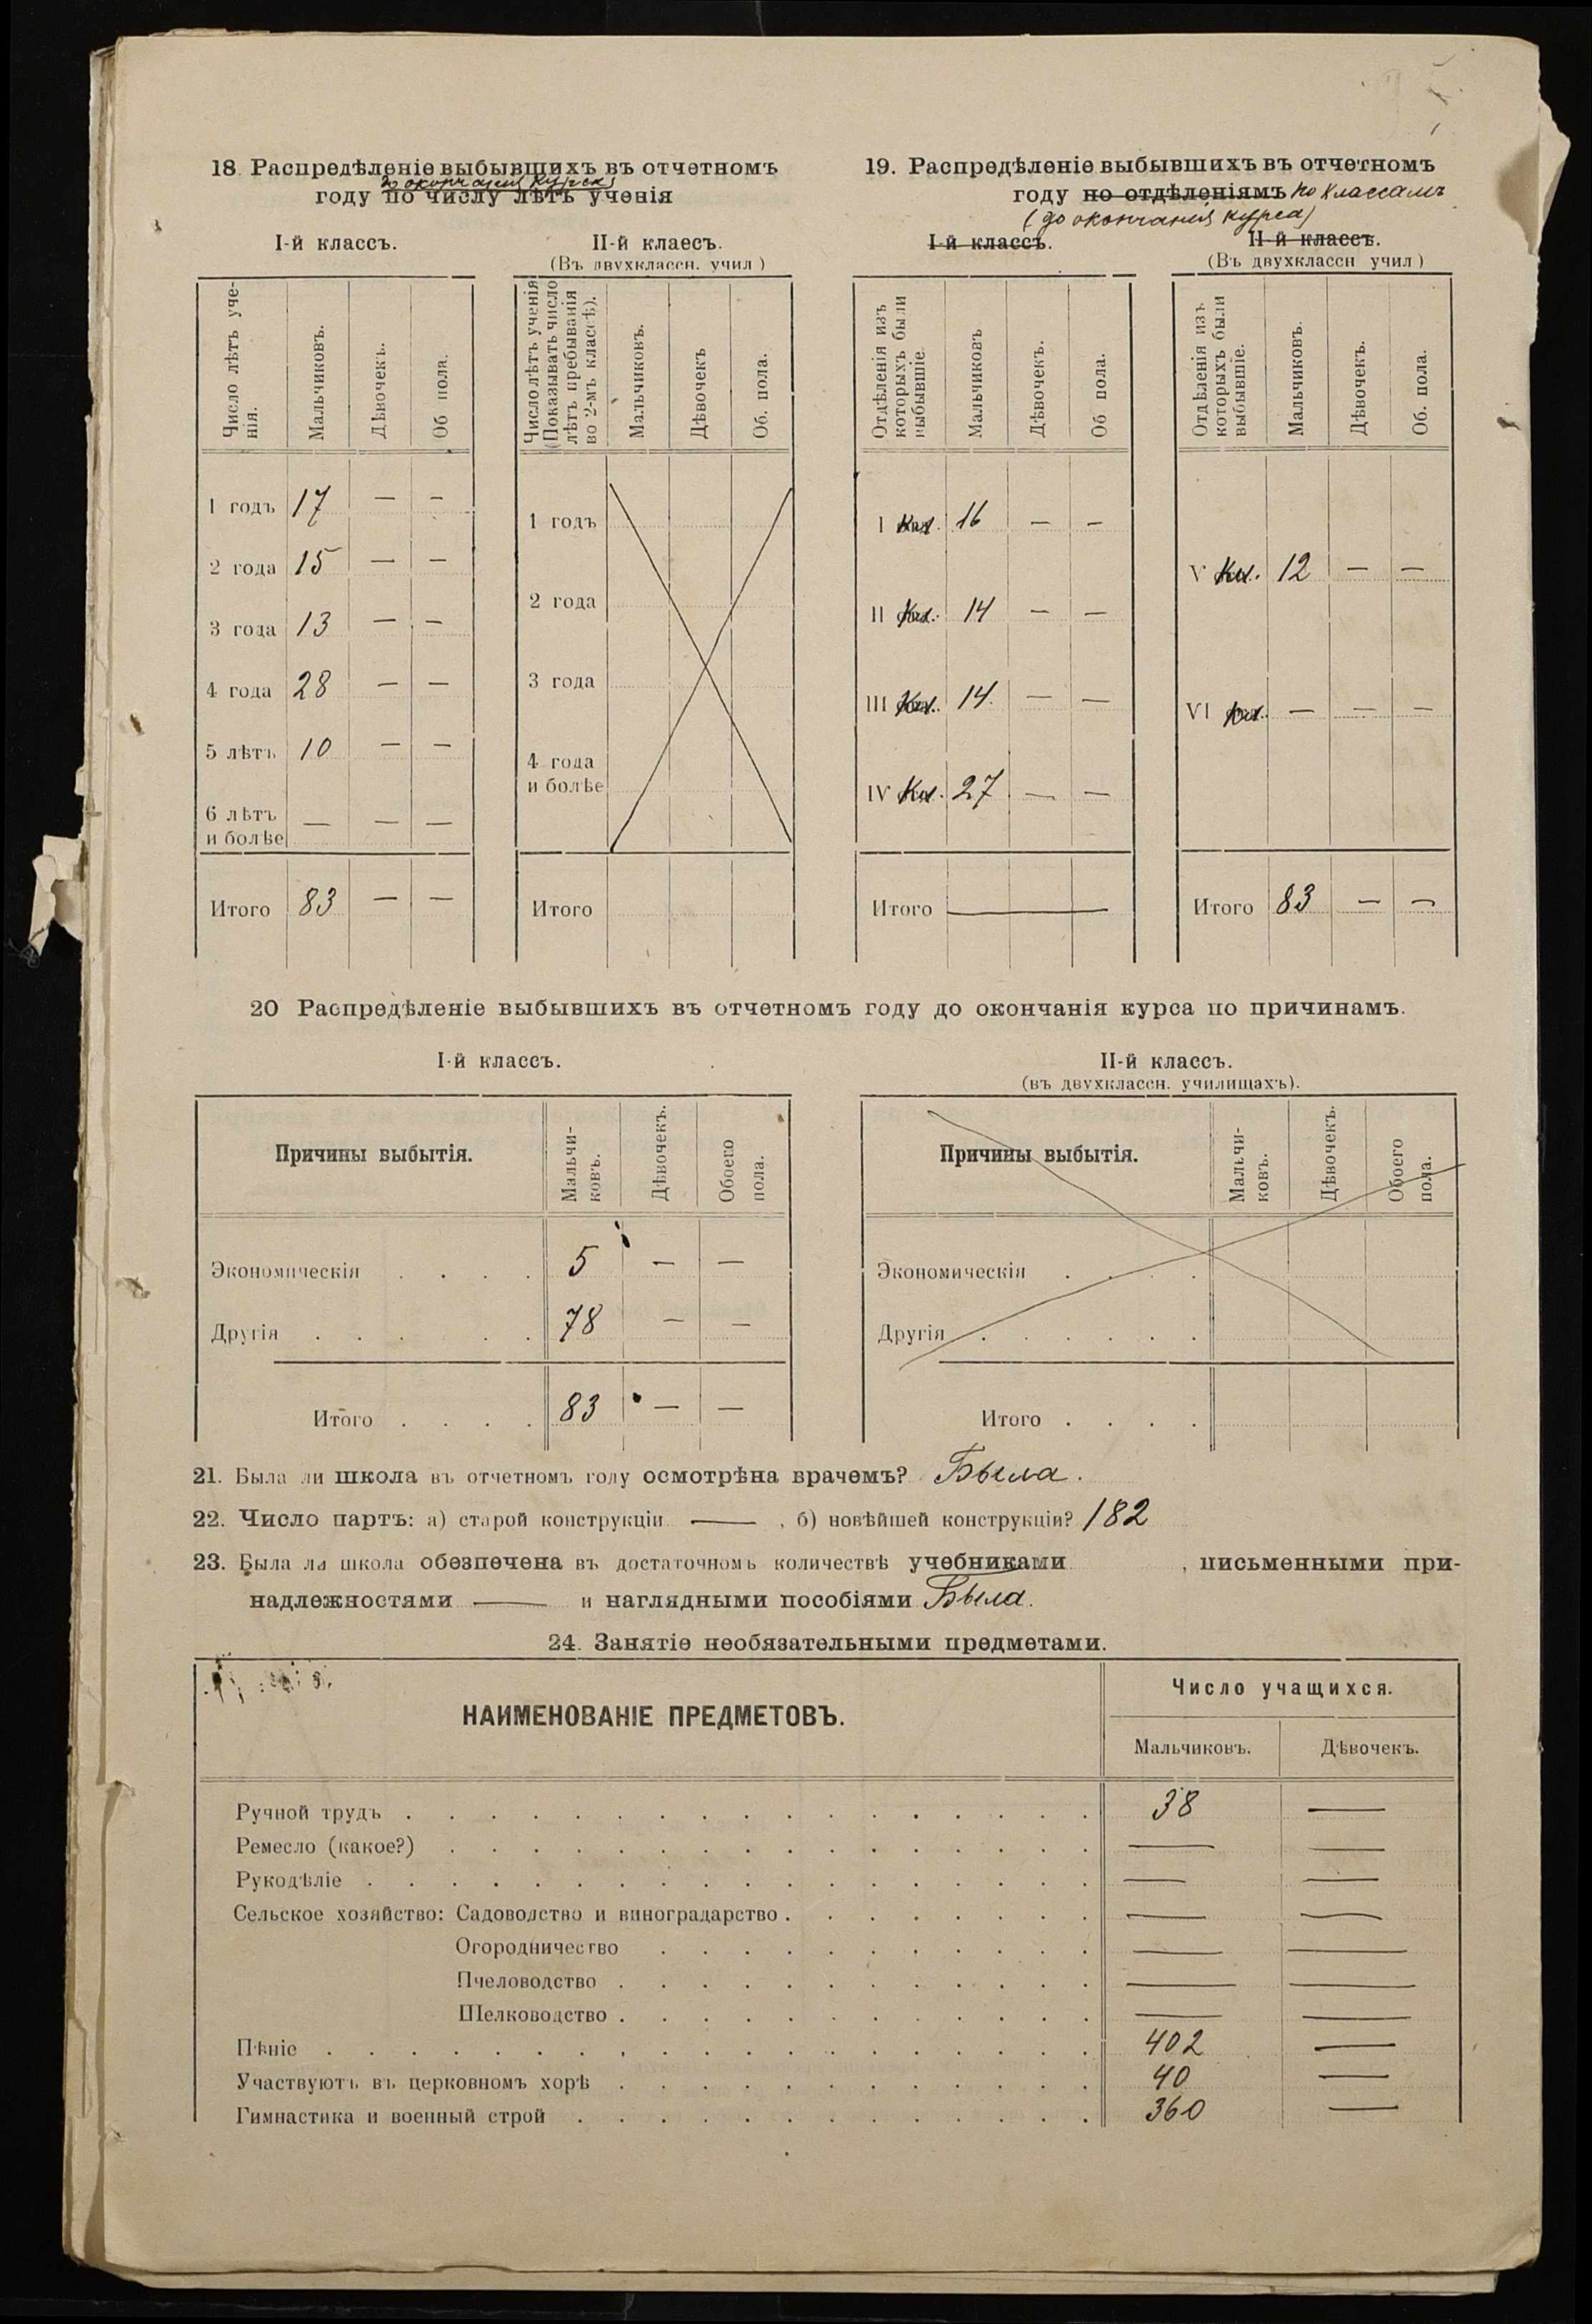 18 Распредѣленіе выбывшихъ въ отчетномъ
до окончанія курса
году по числу лѣтъ ученія
I-й классъ.
Число лѣтъ уче-
нія.
Мальчиковъ.
Дѣвочекъ.
Об пола.
1 годъ 17 — —
2 года 15 — —
3 года 13 — —
4 года 28 — —
5 лѣтъ 10 — —
6 лѣтъ
и болѣе — — —
Итого 83 — —
II-й классъ.
(Въ двухклассн. учил)
Число лѣтъ ученія
(Показывать число
лѣтъ пребыванія
во 2-мъ классѣ).
Мальчиковъ.
Дѣвочекъ
Об. пола.
1 годъ
2 года
3 года
4 года
и болѣе
Итого
19. Распредѣленіе выбывшихъ въ отчетномъ
году по отдѣленіямъ по классамъ
(до окончанія курса)
I-й классъ.
Отдѣленія изъ
которыхъ были
выбывшіе.
Мальчиковъ
Дѣвочекъ.
Об пола.
I Кл. 16 — —
II Кл. 14 — —
III Кл. 14. — —
IV Кл. 27 — —
Итого —
II-й классъ.
(Въ двухклассн учил)
Отдѣленія изъ
которыхъ были
выбывшіе.
Мальчиковъ.
Дѣвочекъ.
Об. пола.
V Кл. 12 — —
VI Кл. — — —
Итого 83 — —
20 Распредѣленіе выбывшихъ въ отчетномъ году до окончанія курса по причинамъ.
I-й классъ.
Причины выбытія.
Мальчи-
ковъ.
Дѣвочекъ.
Обоего
пола.
Экономическія . . . . 5 — —
Другія . . . . . 78 — —
Итого . . . . 83 — —
II-й классъ.
(въ двухклассн. училищахъ).
Причины выбытія.
Мальчи-
ковъ.
Дѣвочекъ.
Обоего
пола.
Экономическія . . . .
Другія . . . . . .
Итого . . . .
21. Была ли школа въ отчетномъ году осмотрѣна врачемъ? Была.
22. Число партъ: а) старой конструкціи — , б) новѣйшей конструкціи? 182
23. Была ли школа обезпечена въ достаточномъ количествѣ учебниками , письменными при-
надлежностями — и наглядными пособіями Была.
24. Занятіе необязательными предметами.
НАИМЕНОВАНІЕ ПРЕДМЕТОВЪ.
Число учащихся.
Мальчиковъ. Дѣвочекъ.
Ручной трудъ . . . 38 —
Ремесло (какое?) . . . — —
Рукодѣліе . . . — —
Сельское хозяйство: Садоводство и виноградарство . . . — —
Огородничество . . . — —
Пчеловодство . . . — —
Шелководство . . . — —
Пѣніе . . . 402 —
Участвуютъ въ церковномъ хорѣ . . . 40 —
Гимнастика и военный строй . . . 360 —